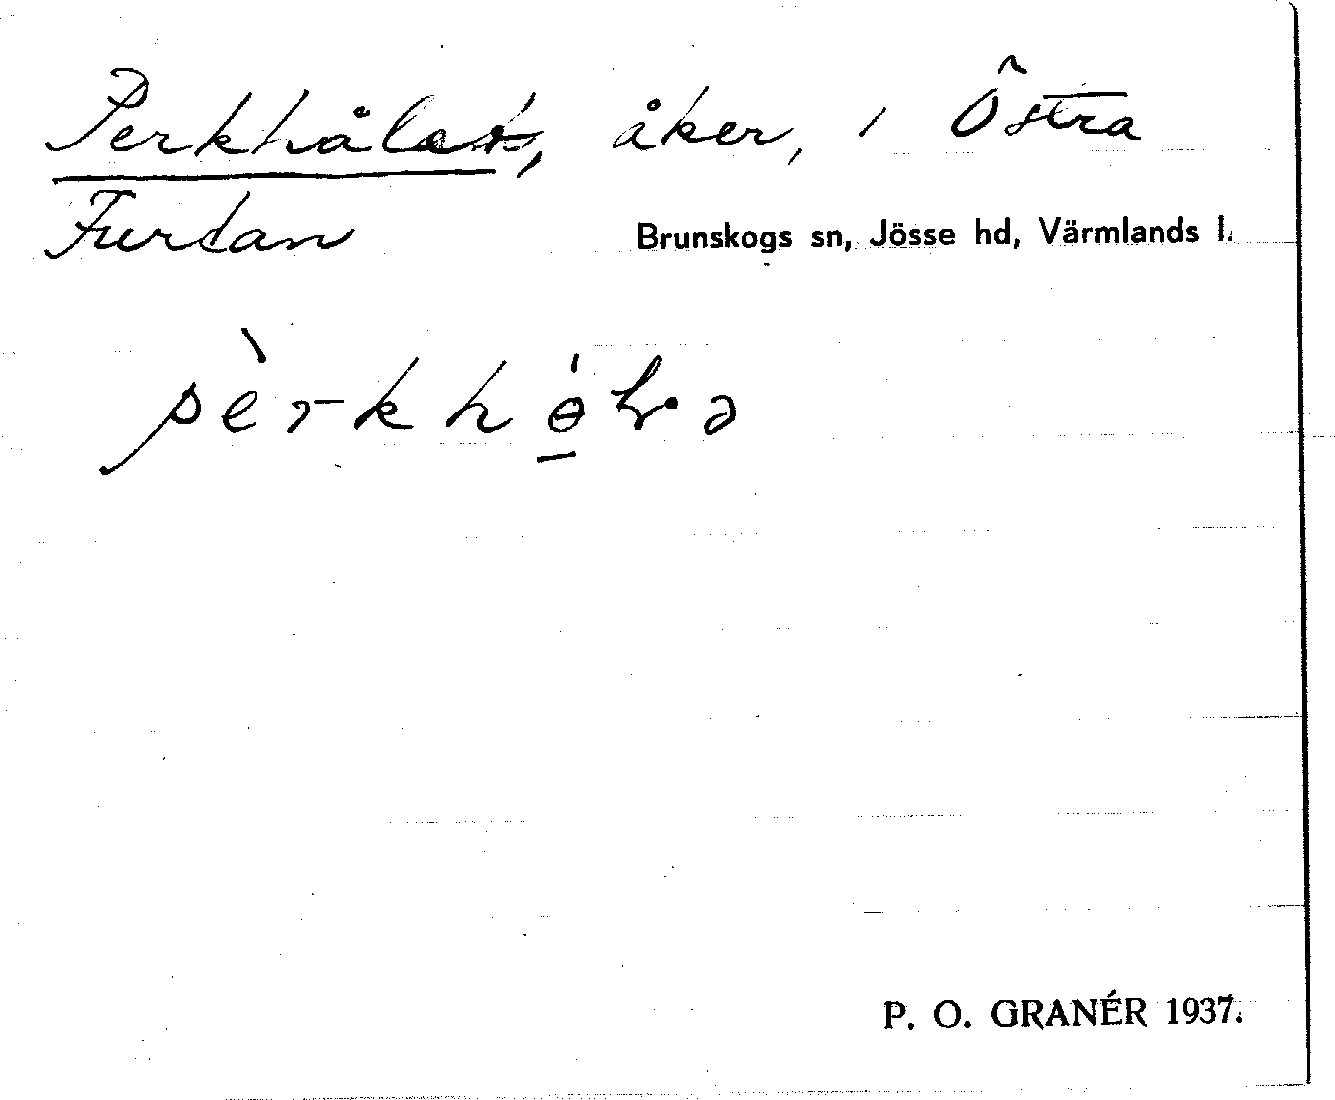 Perkhålet, åker, i Östra
Furtan Brunskogs sn, Jösse hd, Värmlands l.
P. O. GRANÉR 1937.